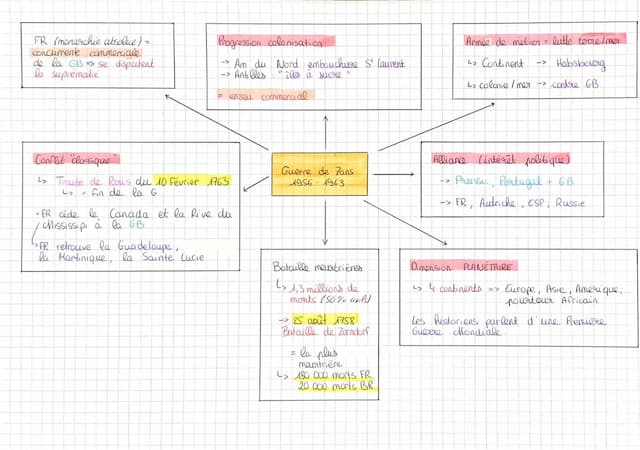 FR (monarchie absolue) =
concurrente commerciale
de la GB => se disputent
la suprématie
Progression colonisation
-> Am du Nord embouchure St laurent
-> Antilles : "îles à sucre"
= enjeu commercial
Armée de métier = lutte terre/mer
↳ Continent -> Habsbourg
↳ colonie/mer -> contre GB
Conflit "classique"
↳ Traité de Paris du 10 Février 1763
↳ = fin de la G
• FR cède le Canada et la Rive du
Mississipi à la GB
FR retrouve la Guadeloupe,
la Martinique, la Sainte Lucie
Guerre de 7ans
1956 - 1963
Alliance (intérêt politique)
-> Prusse, Portugal + GB
-> FR, Autriche, ESP, Russie
Bataille meurtrières
↳ 1,3 millions de
morts (50%
-> 25 août 1758
Bataille de Zorndorf
= la plus
meurtrière
↳ 180 000 morts FR
20 000 morts BR
Dimension PLANÉTAIRE
↳ 4 continents => Europe, Asie, Amérique,
pourtour Africain
Les historiens parlent d'une Première
Guerre Mondiale